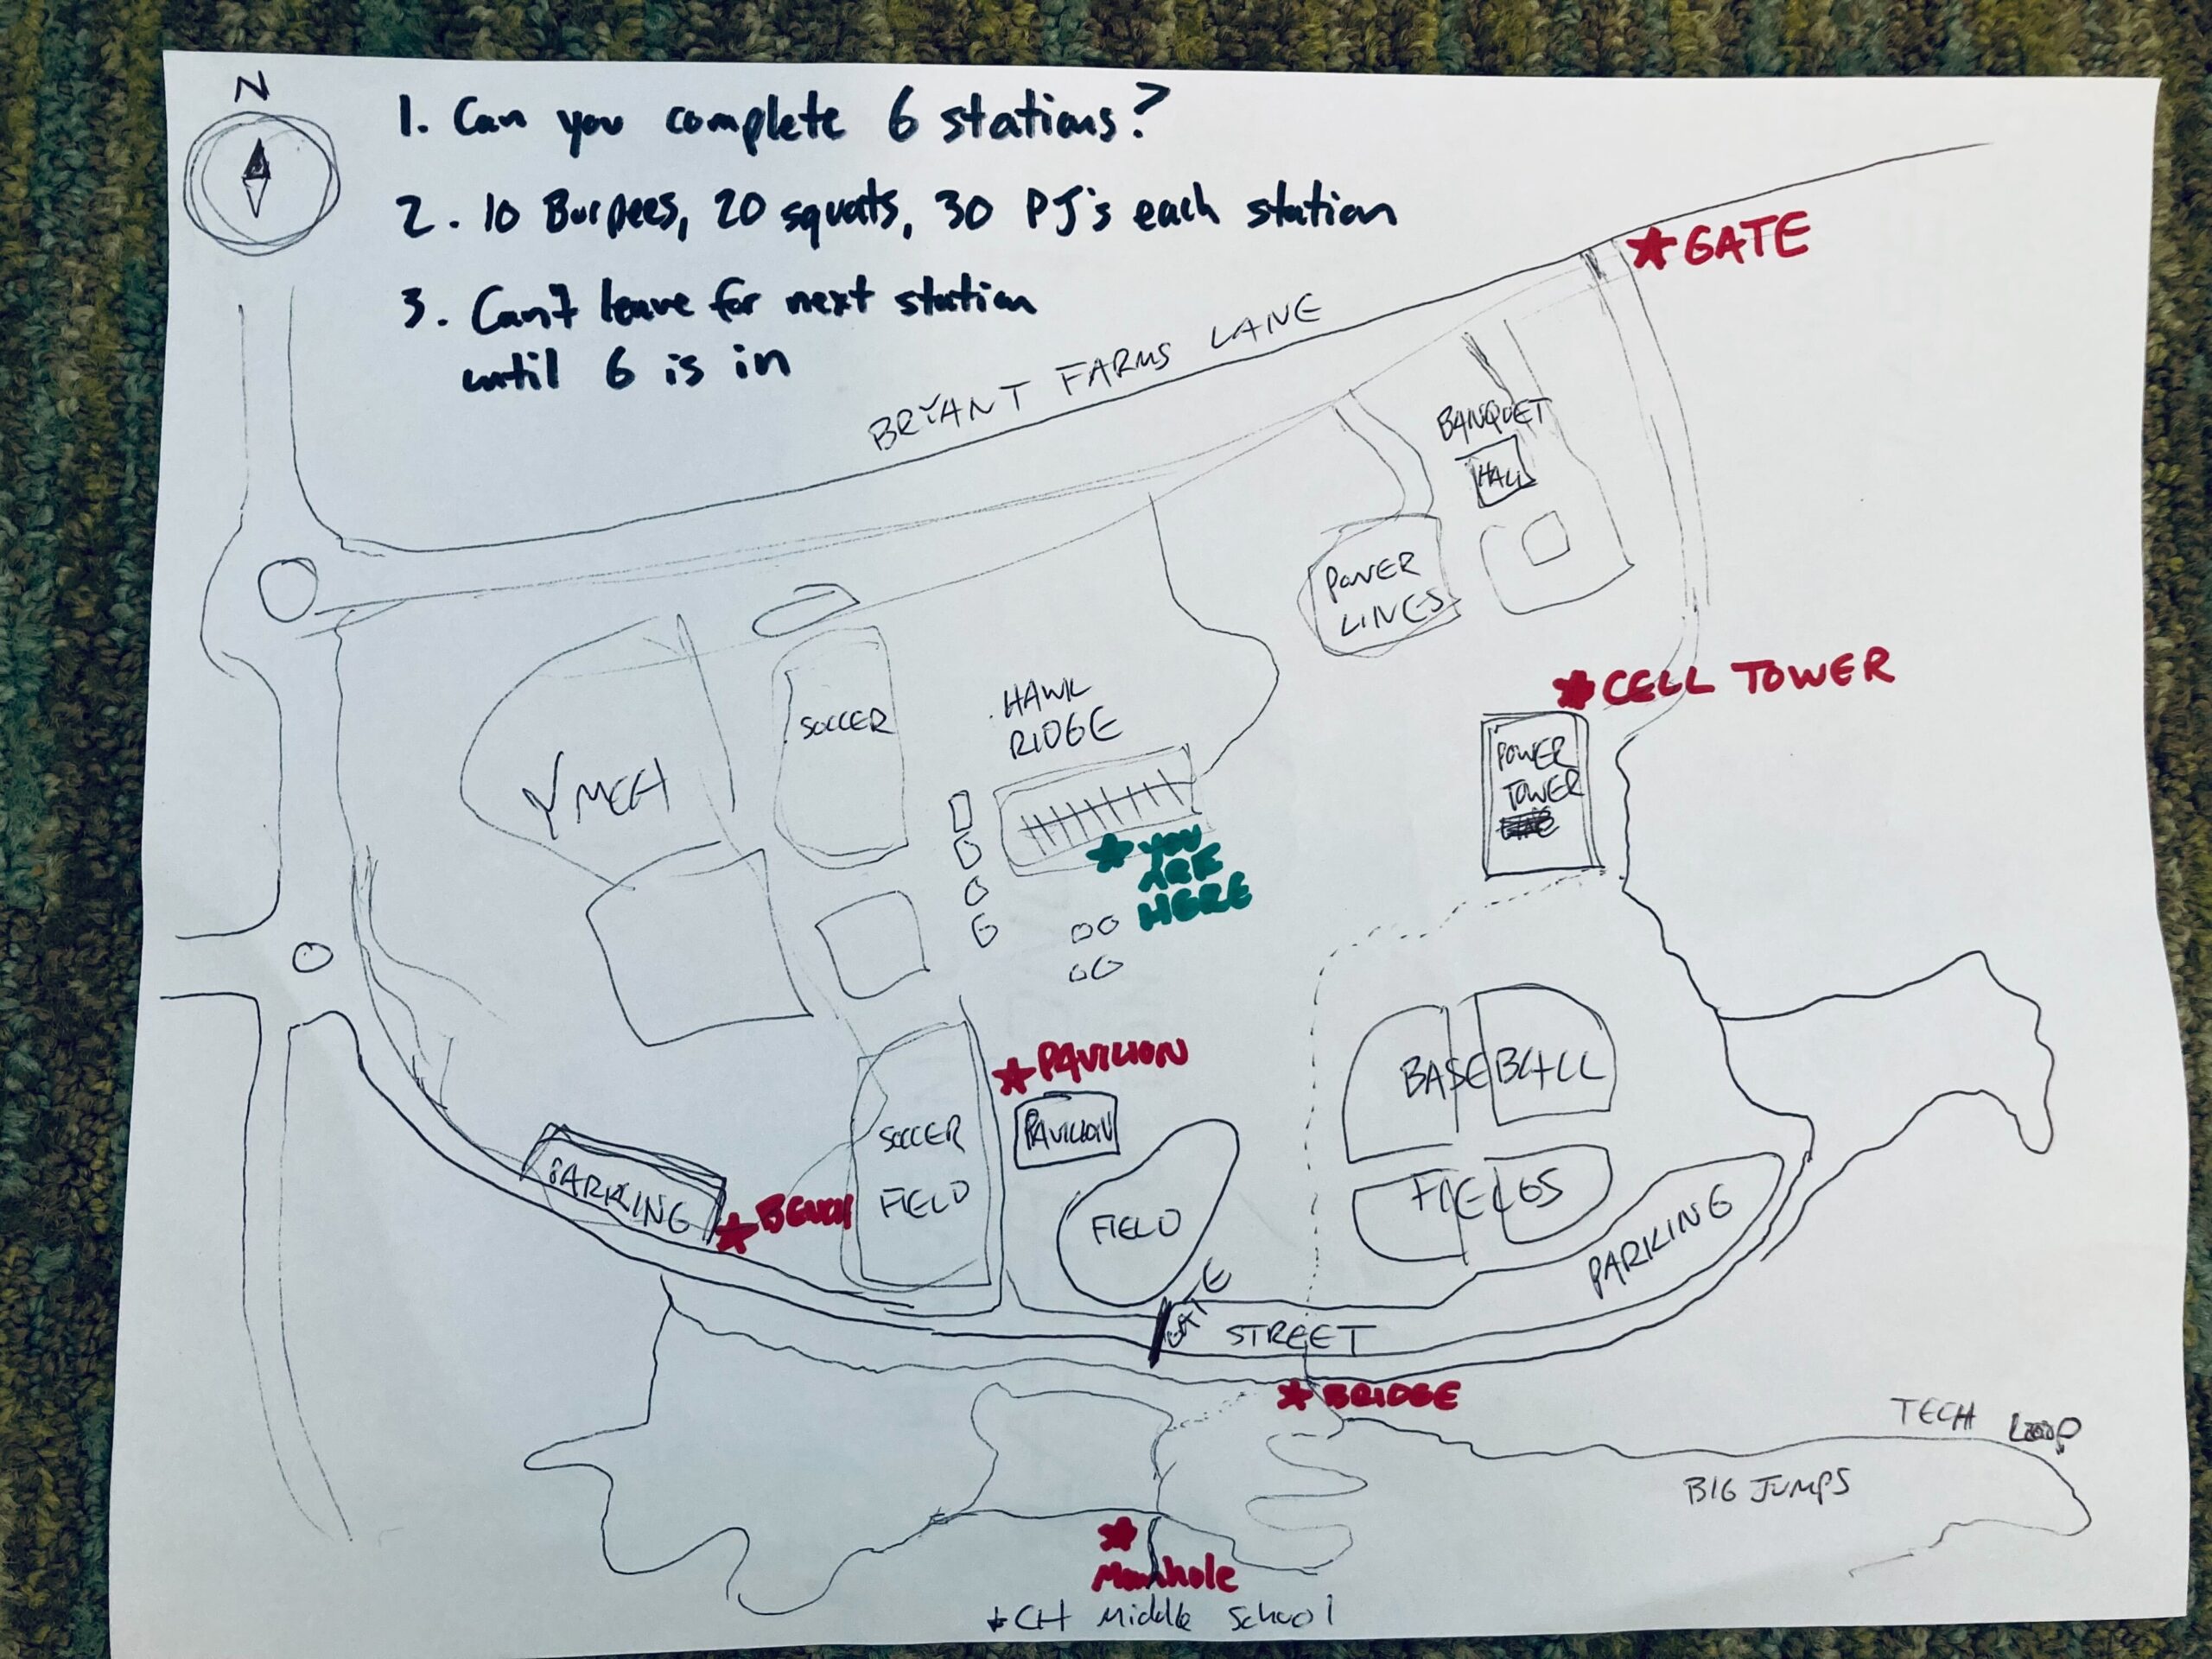 N
1. Can you complete 6 stations?
2. 10 Burpees, 20 squats, 30 PJ's each station
3. Can't leave for next station
until 6 is in
★ GATE
BRYANT FARMS LANE
BANQUET
HALL
POWER
LINES
★ CELL TOWER
POWER
TOWER
SOCCER
HAWK
RIDGE
YMCA
★ YOU
ARE
HERE
★ PAVILION
PAVILION
BASEBALL
FIELDS
SOCCER
FIELD
PARKING
★ BENCH
FIELD
PARKING
GATE
STREET
★ BRIDGE
TECH LOOP
BIG JUMPS
★
Manhole
★CH Middle School